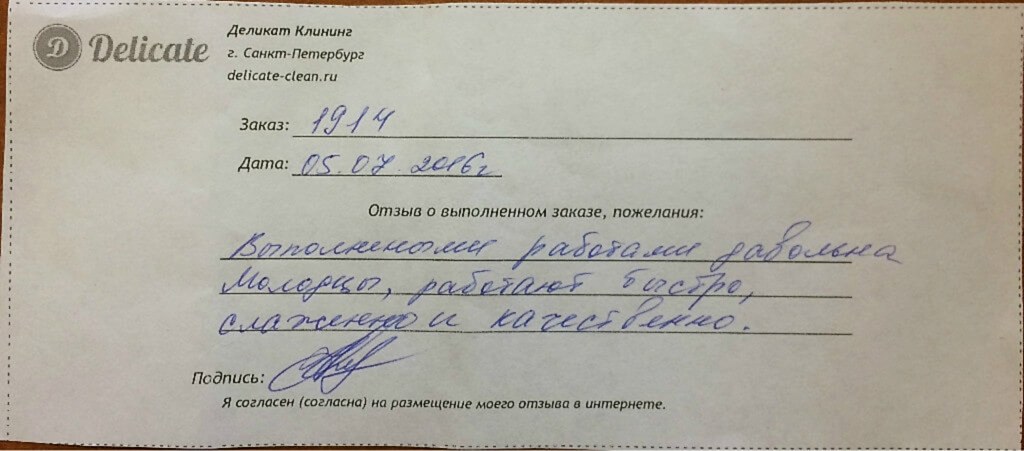 D Delicate
Деликат Клининг
г. Санкт-Петербург
delicate-clean.ru
Заказ: 1914
Дата: 05.07.2016г
Отзыв о выполненном заказе, пожелания:
Выполнеными работами давольна
Молодцы, работают быстро,
слаженно и качественно.
Подпись:
Я согласен (согласна) на размещение моего отзыва в интернете.